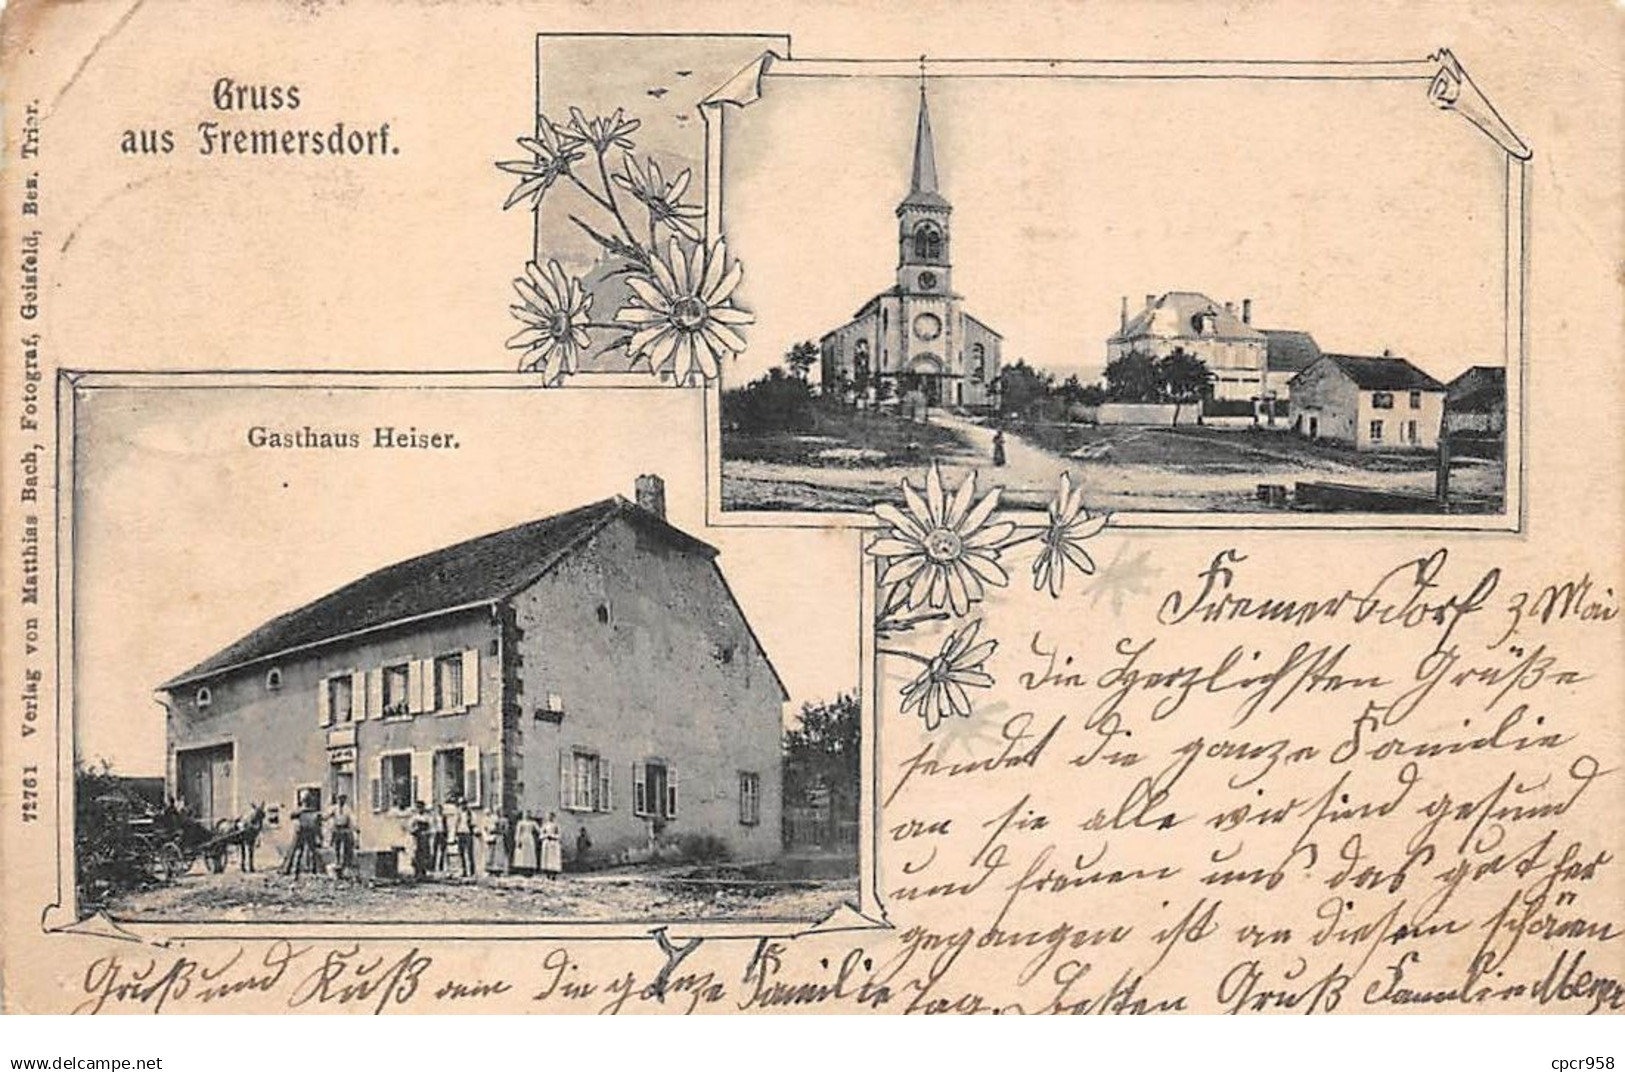 Gruss
aus Fremersdorf.
72761 Verlag von Matthias Bach, Fotograf, Geisfeld, Bez. Trier.
Gasthaus Heiser.
Fremersdorf 3. Mai
Die Herzlichsten Grüße
sendet die ganze Familie
an sie alle wir sind gesund
und freuen uns das gut her
gegangen ist an diesem schönen
Tag. Besten Gruß Familie
Gruß und Kuß die ganze Familie
www.delcampe.net
cpcr958